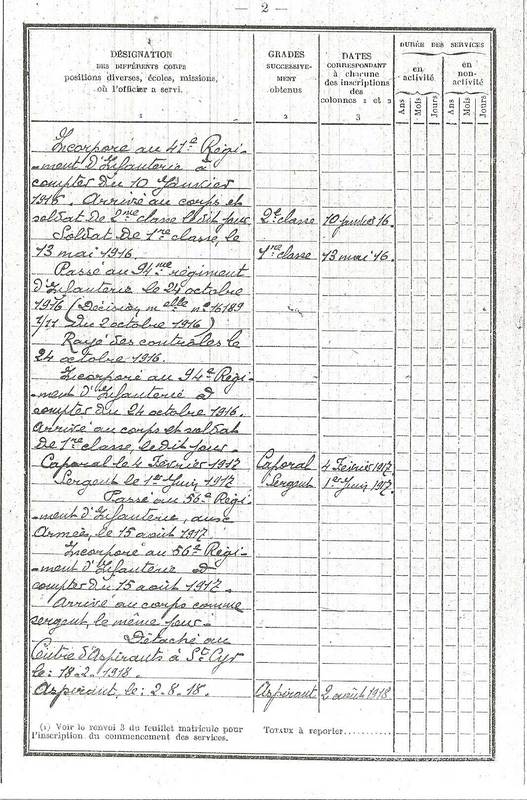 — 2 —
DÉSIGNATION
DES DIFFÉRENTS CORPS
positions diverses, écoles, missions,
où l'officier a servi.
1
GRADES
SUCCESSIVE-
MENT
obtenus
2
DATES
CORRESPONDANT
à chacune
des inscriptions
des
colonnes 1 et 2
3
DURÉE DES SERVICES
en
activité
en
non-
activité
Ans
Mois
Jours
Ans
Mois
Jours
Incorporé au 41e Régi-
-ment d'Infanterie à
compter du 10 Janvier
1916. Arrivé au corps et
soldat de 2me classe le dit jour 2e classe 10 janvier 16.
Soldat de 1re classe, le
13 mai 1916. 1re classe 13 mai 16.
Passé au 94me régiment
d'Infanterie le 24 octobre
1916 (Décision melle no 16189
1/11 du 2 octobre 1916)
Rayé des contrôles le
24 octobre 1916.
Incorporé au 94e Régi-
-ment d'Infanterie à
compter du 24 octobre 1916.
Arrivé au corps et soldat
de 1re classe, le dit jour.
Caporal le 4 Février 1917 Caporal 4 Février 1917.
Sergent le 1er Juin 1917 Sergent 1er Juin 1917.
Passé au 56e Régi-
-ment d'Infanterie, aux
Armées, le 15 août 1917.
Incorporé au 56e Régi-
-ment d'Infanterie à
compter du 15 août 1917.
Arrivé au corps comme
sergent, le même jour.
Détaché au
Centre d'Aspirants à St Cyr
le: 18.2.1918.
Aspirant, le: 2.8.18. Aspirant 2 août 1918
(1) Voir le renvoi 3 du feuillet matricule pour
l'inscription du commencement des services.
TOTAUX à reporter............